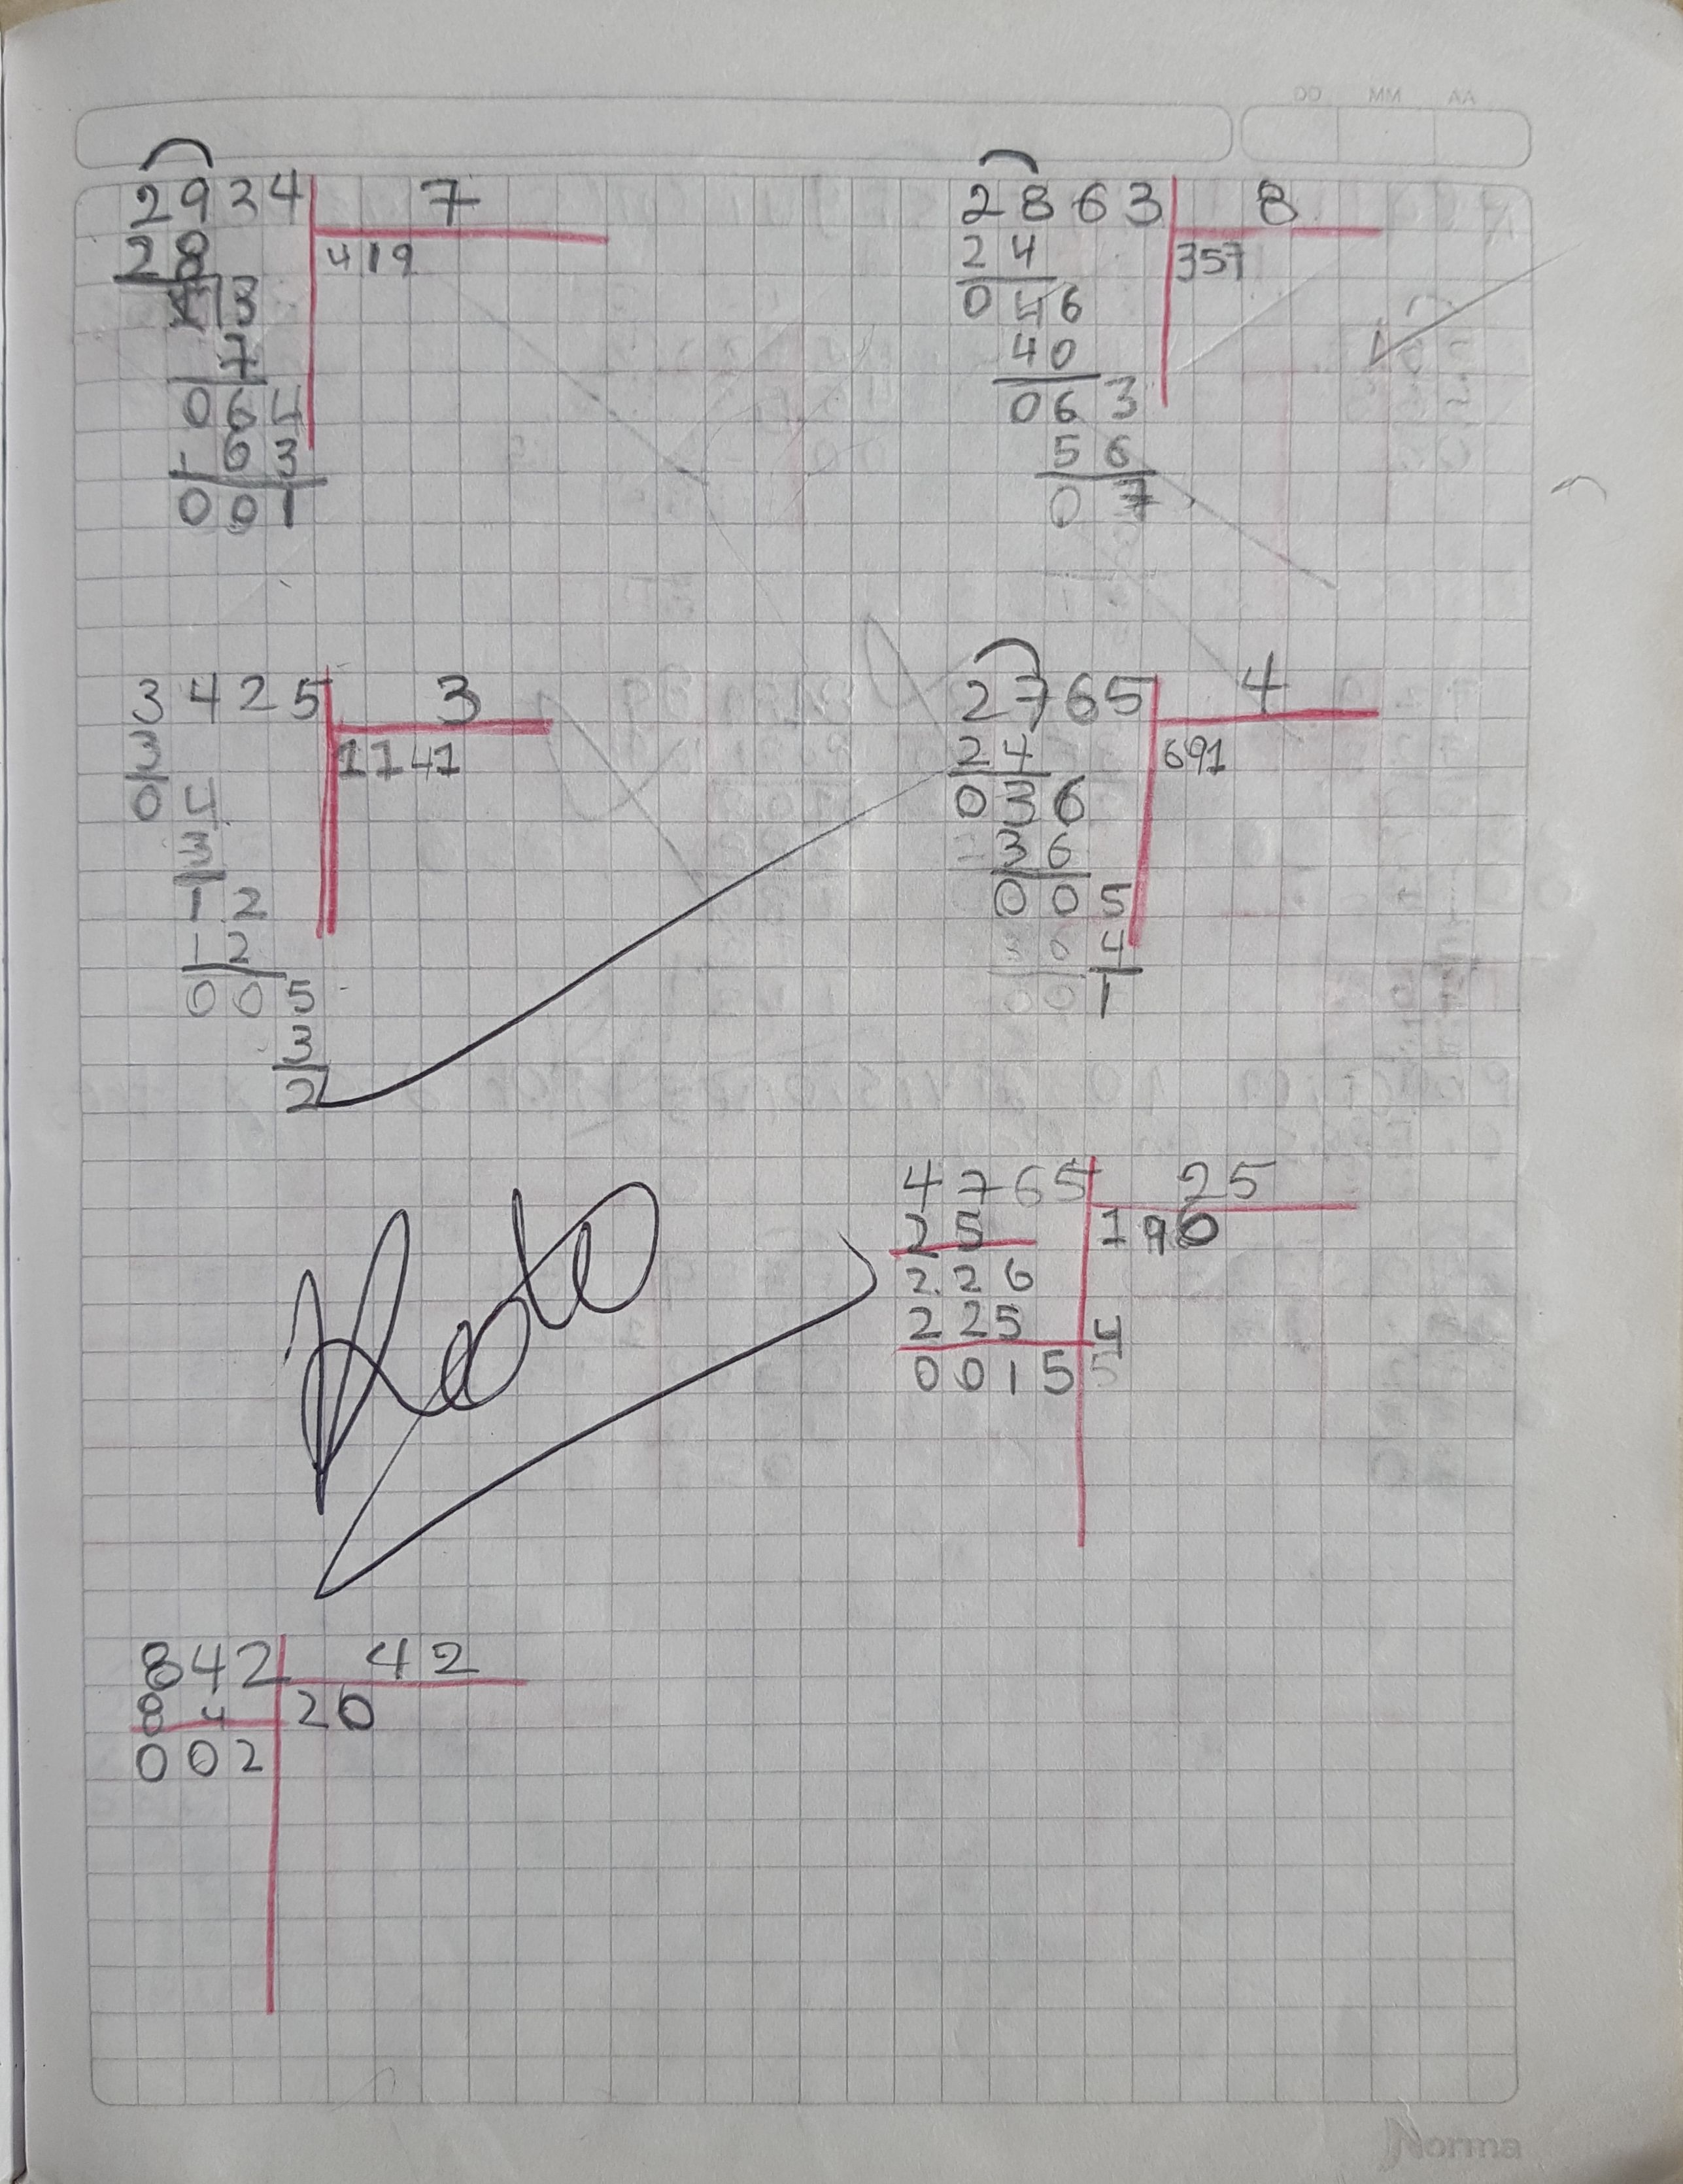 DD MM AA
2934 7
28 419
173
7
064
- 63
001
2863 8
24 357
046
40
063
56
07
3425 3
3 1141
04
3
12
12
005
3
2
2765 4
24 691
036
- 36
005
4
001
4765 25
25 190
226
225 4
0015 5
842 42
84 20
002
Norma